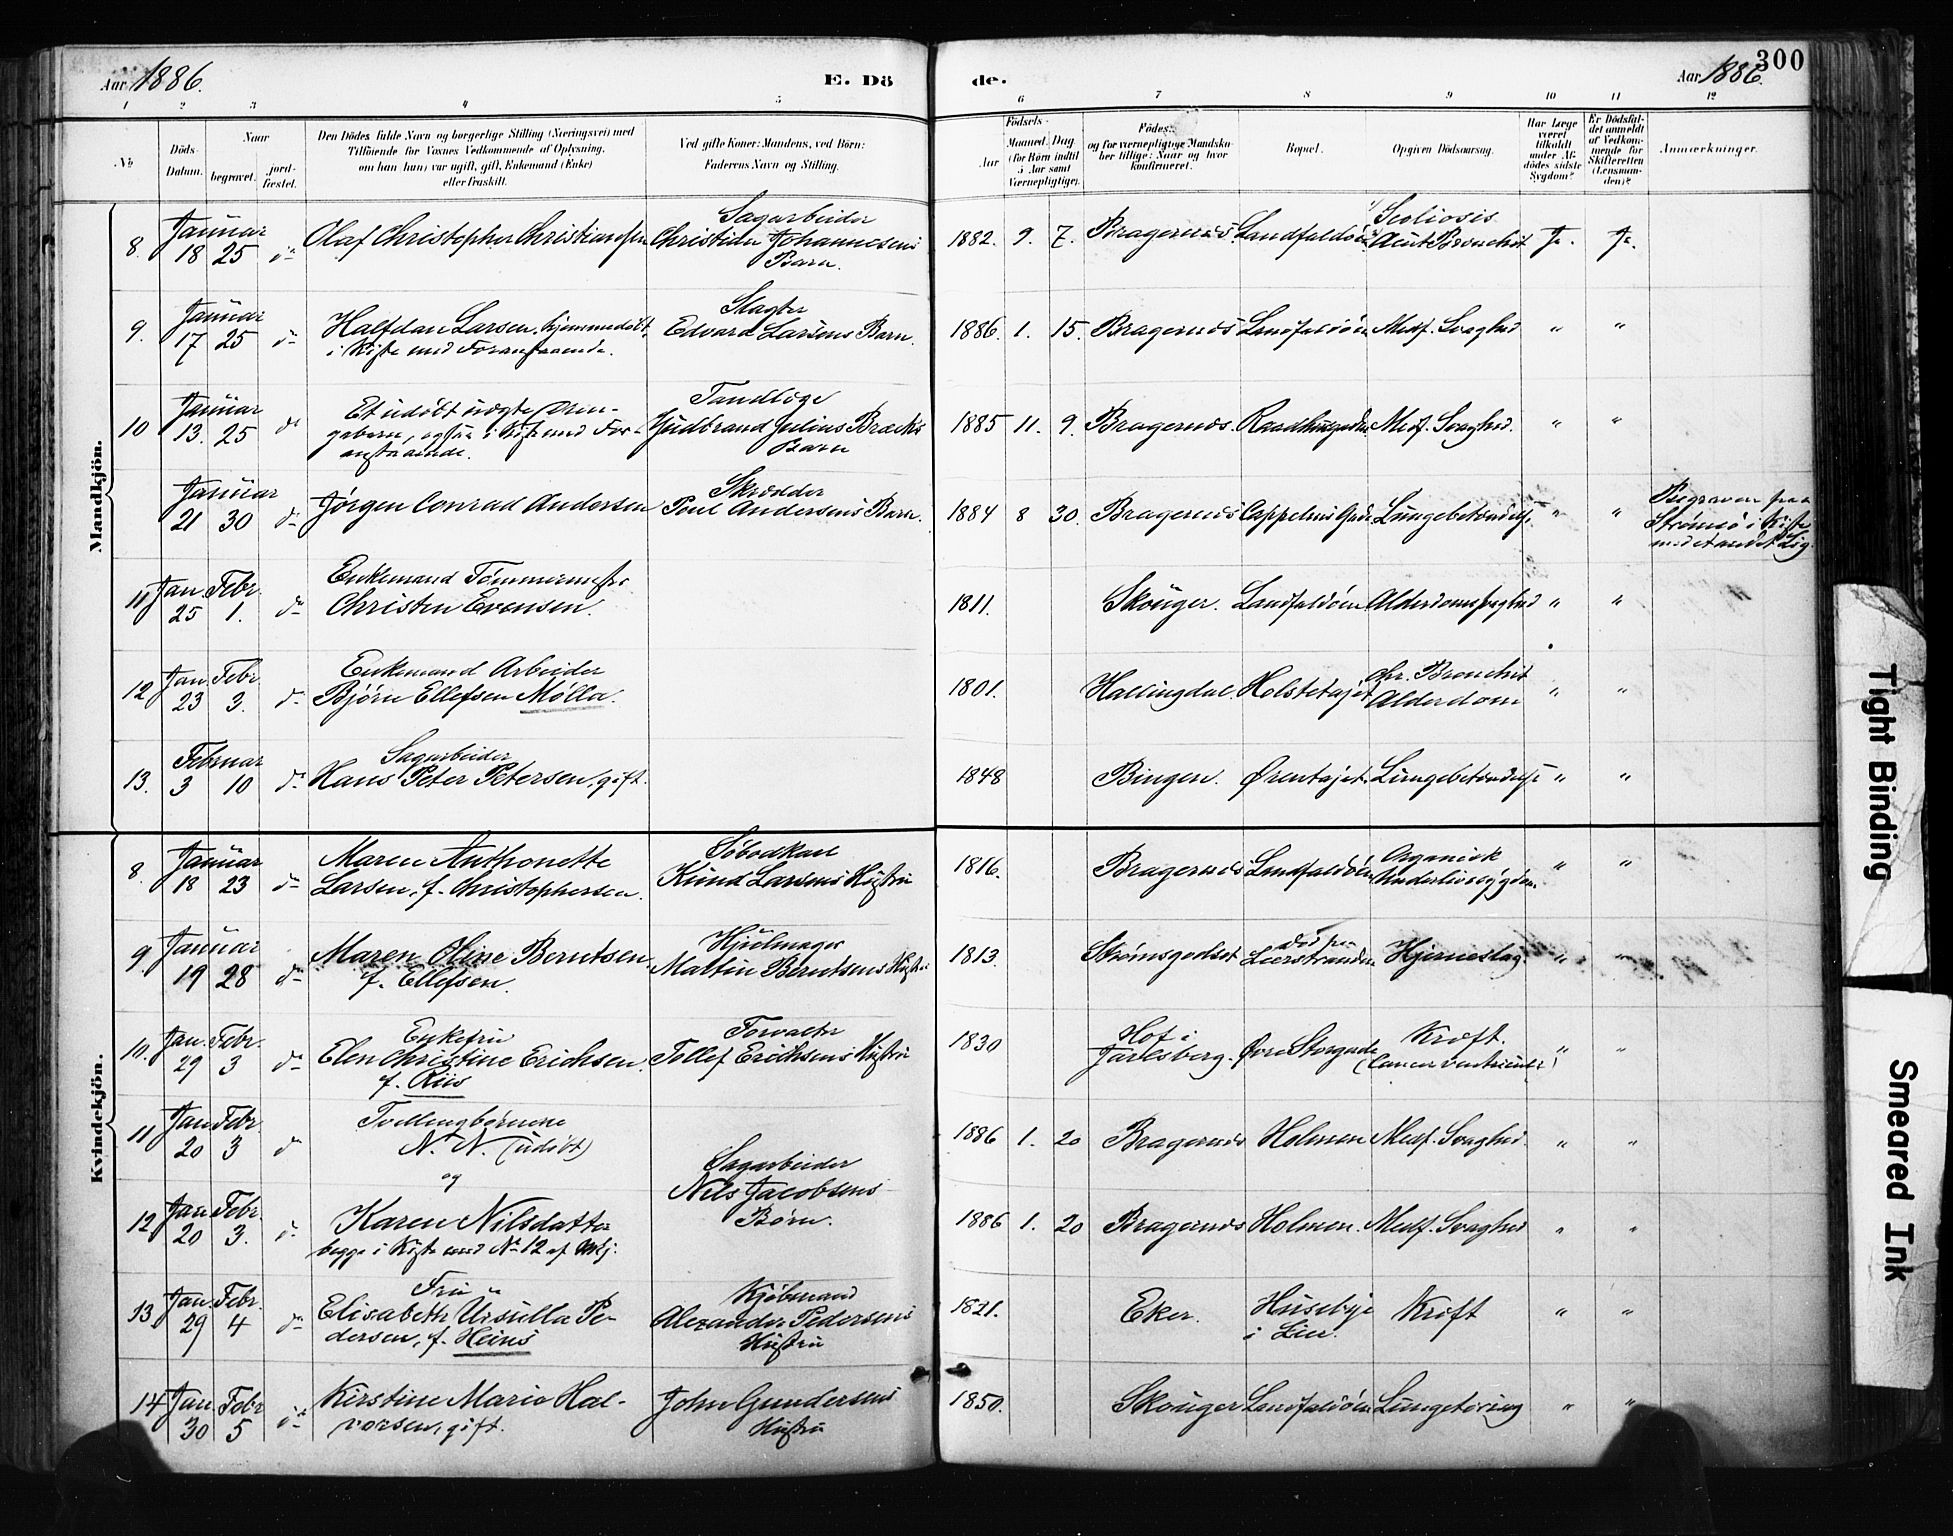 Aar 1886.
E. Dö
de.
Aar 1886.
300
1 2 3 4 5 6 7 8 9 10 11 12
No
Döds-
Datum.
Naar
begravet.
jord-
fæstet.
Den Dödes fulde Navn og borgerlige Stilling (Næringsvei) med
Tilföiende for Voxnes Vedkommende af Oplysning,
om han (hun) var ugift, gift, Enkemand (Enke)
eller fraskilt.
Ved gifte Koner: Mandens, ved Börn:
Faderens Navn og Stilling.
Födsels-
Aar
Maaned
Dag
(for Börn indtil
5 Aar samt
Værnepligtige).
Födested
og for værnepligtige Mandskaber tillige: Naar og hvor
konfirmeret.
Bopæl.
Opgiven Dödsaarsag.
Har Læge
været
tilkaldt
under Afdödes sidste
Sygdom?
Er Dödsfaldet anmeldt
af Vedkommende for
Skifteretten
(Lensmanden)?
Anmærkninger.
Mandkjön.
8. Januar 18 25 do Olaf Christopher Christiansen
Sagarbeider
Christian Johannesens
Barn.
1882. 9. 7. Bragernæs. Landfaldöen
Scoliosis
Acut Bronchit Ja. Ja.
9. Januar 17 25 do Halfdan Larsen, hjemmedöbt,
i Kiste med Foranstaaende.
Slagter
Edvard Larsens Barn.
1886. 1. 15. Bragernæs Landfaldöen Medf. Svaghed " "
10 Januar 13. 25 do Et udöbt uægte Dren-
gebarn, ogsaa i Kiste med For-
anstaaende.
Tandlæge
Gudbrand Julius Bracks
Barn
1885 11. 9. Bragernæs. Raadhusgaden Medf. Svaghed. " "
Januar 21 30 do Jørgen Conrad Andersen
Skrædder
Poul Andersens Barn.
1884 8 30. Bragernæs Cappelens Gade Lungebetændelse " "
Begraven paa
Strømsö i Kiste
med et andet Lig.
11 Jan. 25 Febr. 1. do Enkemand Tømmermester
Christen Evensen.
1811. Skouger. Landfaldöen Alderdomssvaghed " "
12 Jan. 23 Febr. 3. do Enkemand Arbeider
Bjørn Ellefsen Mølla.
1801. Hallingdal Holstetajet
Chr. Bronchit
Alderdom " "
13. Februar 3 10 do Sagarbeider
Hans Peter Petersen, gift.
1848 Bingen. Ørentajet Lungebetændelse " "
Kvindekjön.
8. Januar 18 23 do Maren Anthonette
Larsen, f. Christophersen.
Knud Larsens Hustru
1816. Bragernæs Landfaldöen
Organisk
Underlivssygdom " "
9 Januar 19 28 do Maren Oline Berntsen
f. Ellefsen.
Hjulmager
Martin Berntsens Hustru
1813. Strømsgodset
död paa
Lierstranden Hjerneslag " "
10. Jan. 29 Febr. 3 do Enkefru
Elen Christine Erichsen
f. Riis
Forvalter
Tollef Erichsens Hustru
1830
Hof i
Jarlsberg. Øvre Storgade
Kræft.
(Cancer ventriculi) " "
11 Jan 20 Febr. 3 do Tvillingbørnene
N. N. (udöbt)
og
Sagarbeider
Nils Jacobsens
Børn.
1886 1. 20 Bragernæs Holmen Medf. Svaghed. " "
12 Jan 20 Febr. 3. do Karen Nilsdatter
begge i Kiste med No 12 af Mkj.
1886 1. 20 Bragernæs Holmen. Medf. Svaghed " "
13 Jan. 29 Febr. 4 do Fru
Elisabeth Ursulla Pe-
dersen, f. Heins
Kjøbmand
Alexander Pedersens
Hustru
1821. Eker.
Husebye
i Lier. Kræft " "
14 Jan 30 Febr 5 do Kirstine Marie Hal-
vorsen, gift.
John Gundersens
Hustru
1850. Skouger Landfaldöen Lungetæring " "
Tight Binding
Smeared Ink